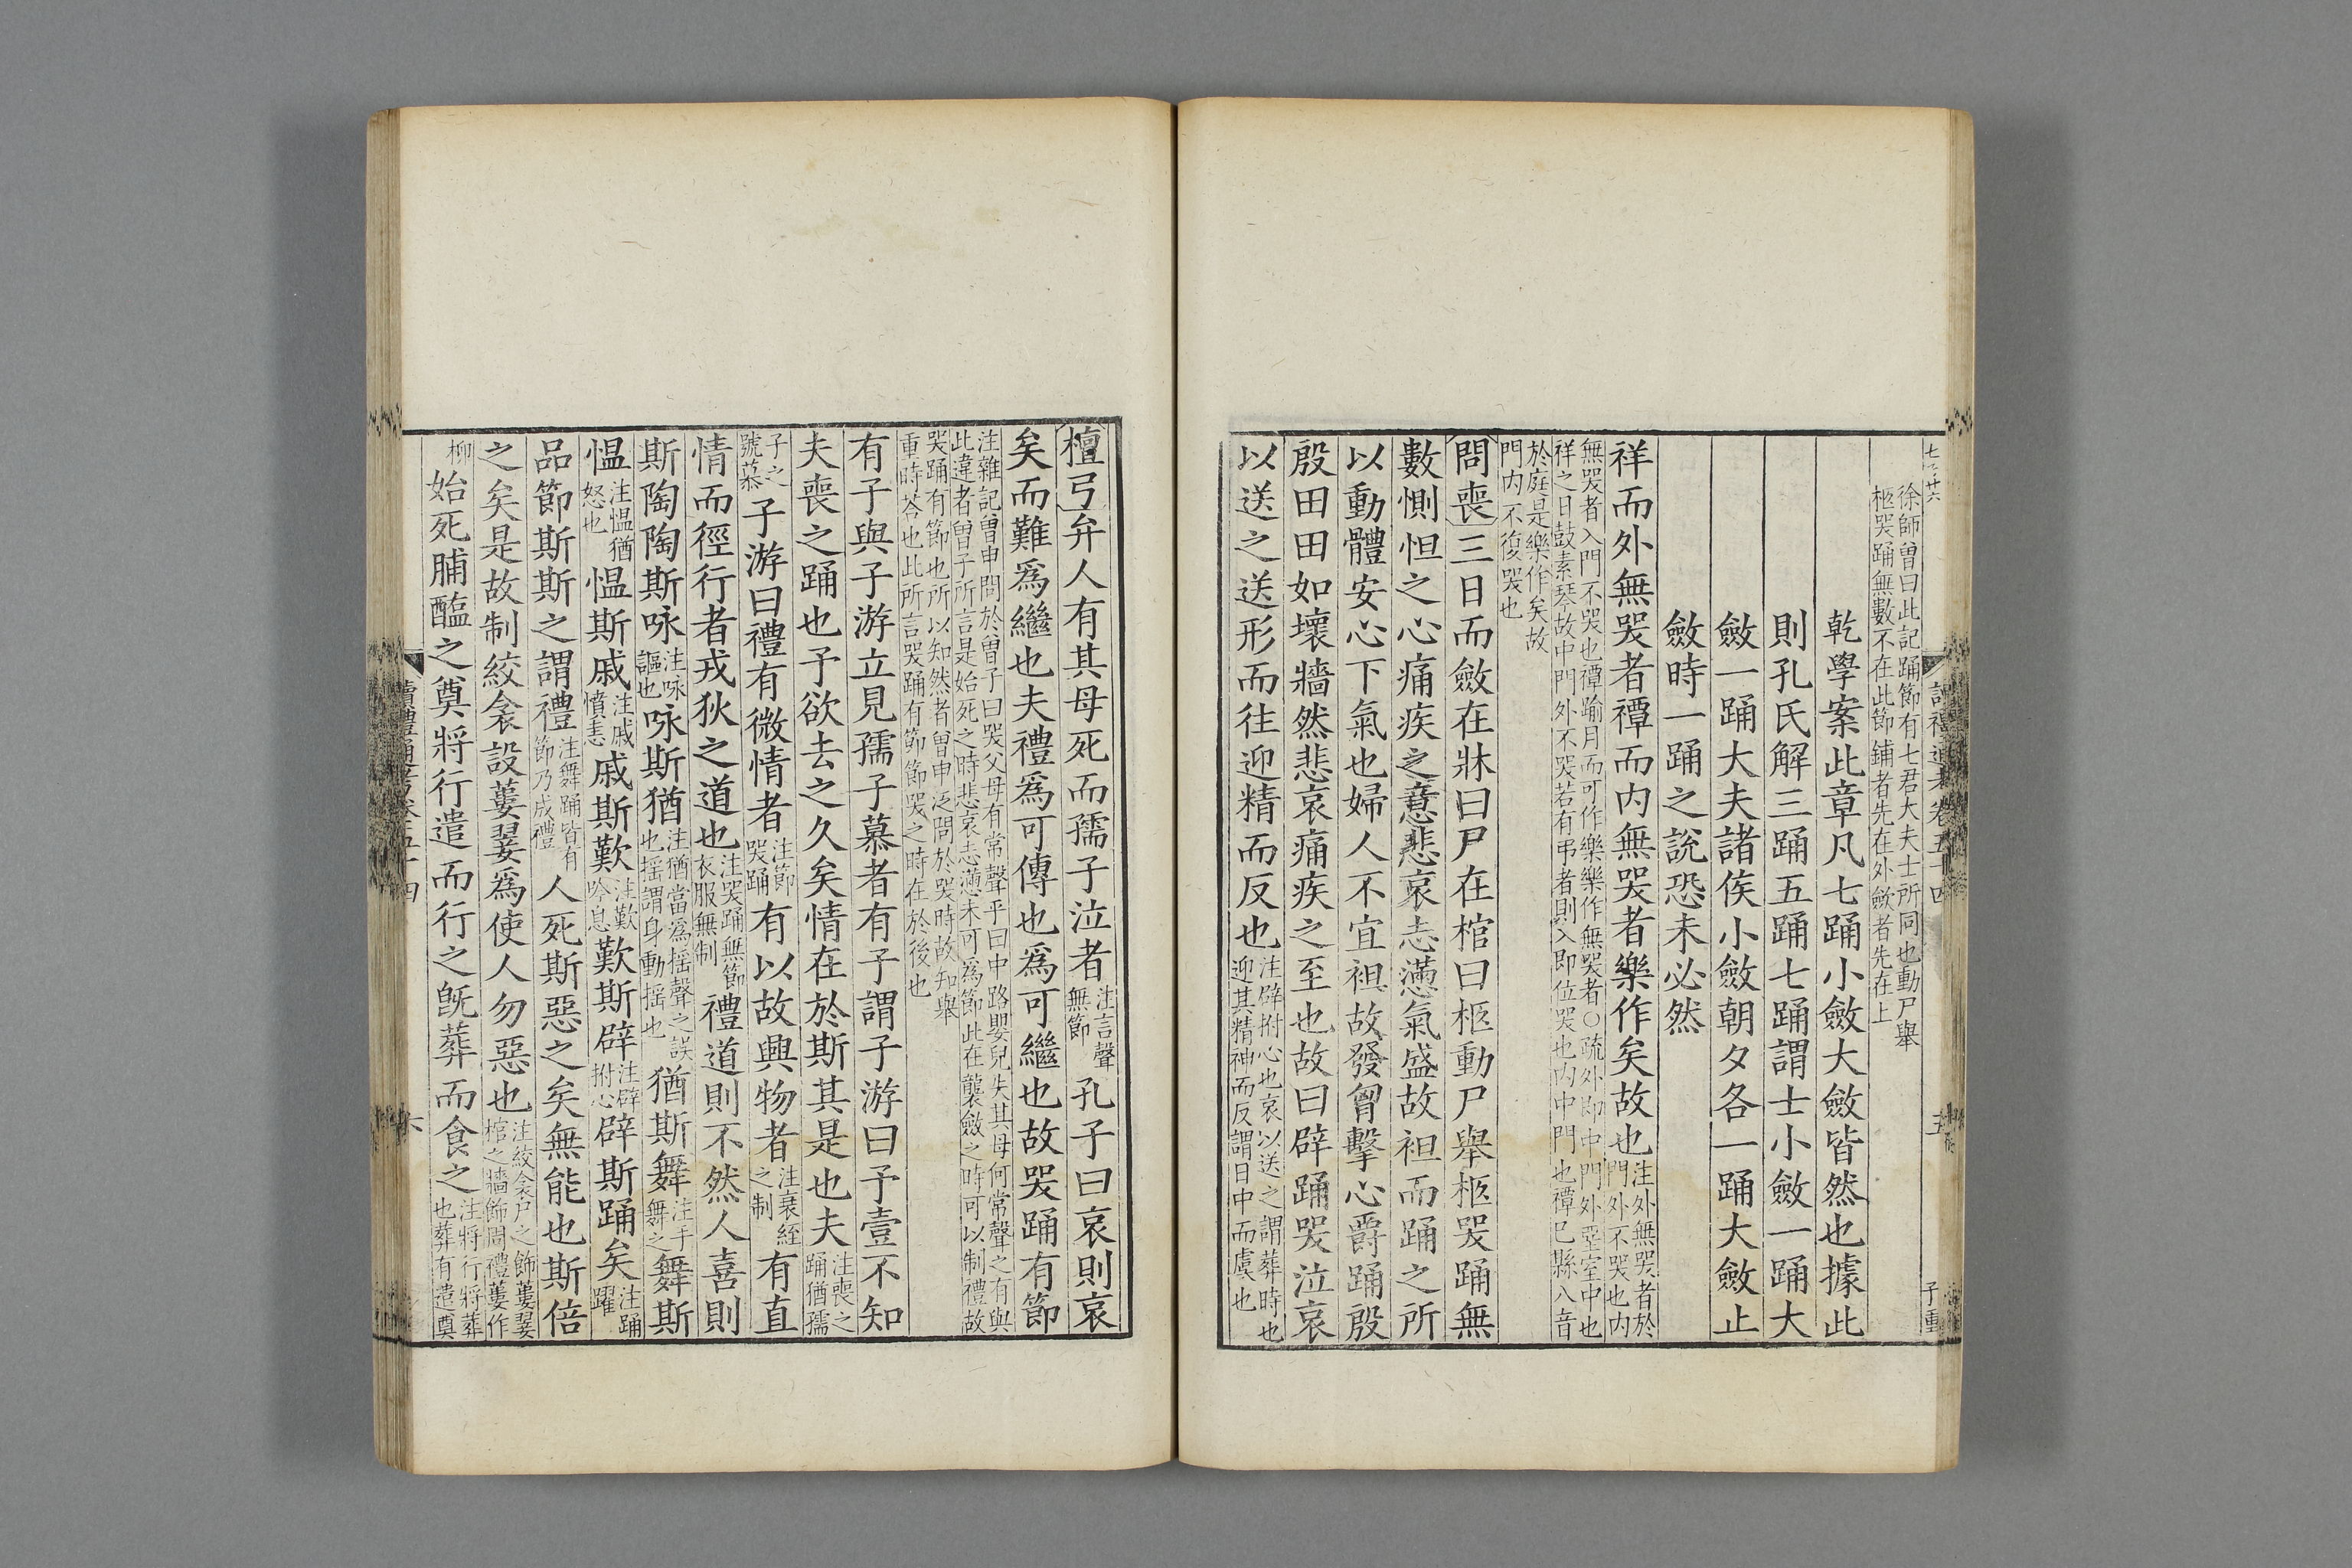 徐師曾曰此記踊節有七君大夫士所同也動尸舉
柩哭踊無數不在此節鋪者先在外斂者先在上
乾學案此章凡七踊小斂大斂皆然也據此
則孔氏解三踊五踊七踊謂士小斂一踊大
斂一踊大夫諸侯小斂朝夕各一踊大斂止
斂時一踊之說恐未必然
祥而外無哭者禫而內無哭者樂作矣故也注外無哭者於
門外不哭也內
無哭者入門不哭也禫踰月而可作樂樂作無哭者○疏外即中門外堊室中也
祥之日鼓素琴故中門外不哭若有弔者則入即位哭也內中門也禫已縣八音
於庭是樂作矣故
門內不復哭也
問喪三日而斂在牀曰尸在棺曰柩動尸舉柩哭踊無
數惻怛之心痛疾之意悲哀志懣氣盛故袒而踊之所
以動體安心下氣也婦人不宜袒故發胷擊心爵踊殷
殷田田如壞牆然悲哀痛疾之至也故曰辟踊哭泣哀
以送之送形而往迎精而反也注辟拊心也哀以送之謂葬時也
迎其精神而反謂日中而虞也
檀弓弁人有其母死而孺子泣者注言聲
無節孔子曰哀則哀
矣而難爲繼也夫禮爲可傳也爲可繼也故哭踊有節
注雜記曾申問於曾子曰哭父母有常聲乎曰中路嬰兒失其母何常聲之有與
此違者曾子所言是始死之時悲哀志懣未可爲節此在襲斂之時可以制禮故
哭踊有節也所以知然者曾申泛問於哭時故知舉
重時荅也此所言哭踊有節節哭之時在於後也
有子與子游立見孺子慕者有子謂子游曰予壹不知
夫喪之踊也予欲去之久矣情在於斯其是也夫注喪之
踊猶孺
子之
號慕子游曰禮有微情者注節
哭踊有以故興物者注衰絰
之制有直
情而徑行者戎狄之道也注哭踊無節
衣服無制禮道則不然人喜則
斯陶陶斯咏注咏
謳也咏斯猶注猶當爲搖聲之誤
也搖謂身動搖也猶斯舞注手
舞之舞斯
慍注慍猶
怒也慍斯戚注戚
憤恚戚斯歎注歎
吟息歎斯辟注辟
拊心辟斯踊矣注踊
躍
品節斯斯之謂禮注舞踊皆有
節乃成禮人死斯惡之矣無能也斯倍
之矣是故制絞衾設蔞翣爲使人勿惡也注絞衾尸之飾蔞翣
棺之牆飾周禮蔞作
柳始死脯醢之奠將行遣而行之旣葬而食之注將行將葬
也葬有遣奠